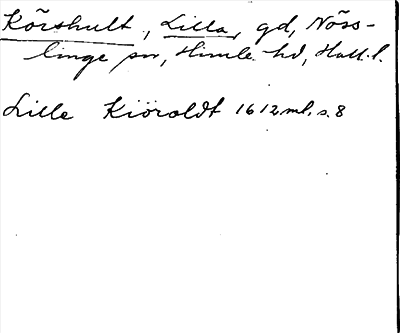 Körshult, Lilla, gd, Nöss-
linge sn, Himle hd, Hall. l.
Lille Kiöroldt 1612 ml, s. 8